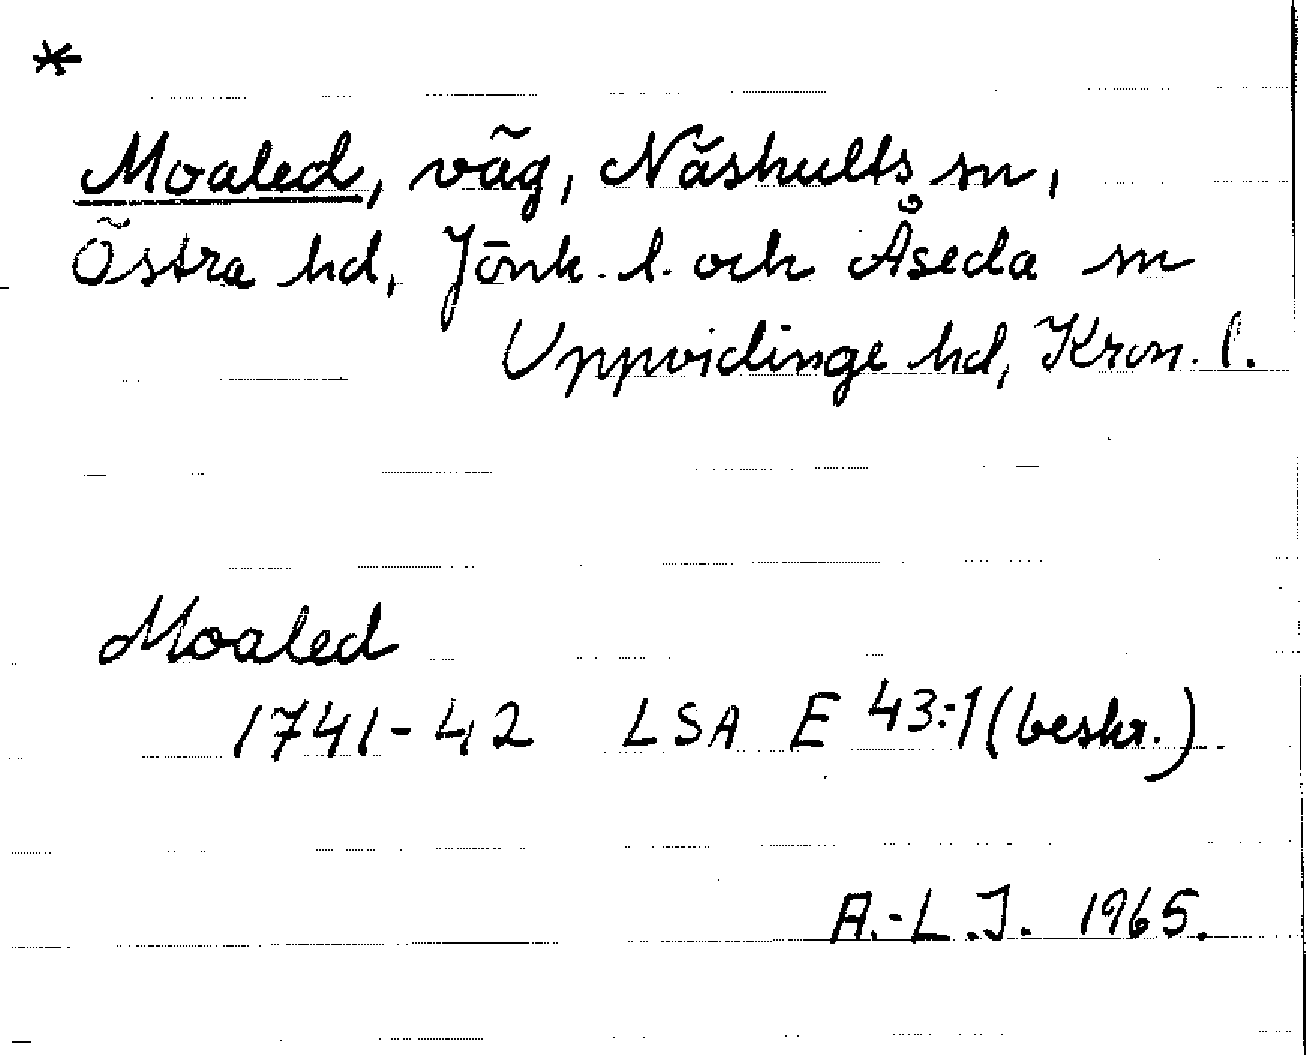 *
Moaled, väg, Näshults sn,
Östra hd, Jönk. l. och Åseda sn
Uppvidinge hd, Kron. l.
Moaled
1741-42 LSA E 43:1 (beskr.)
A.-L.J. 1965.